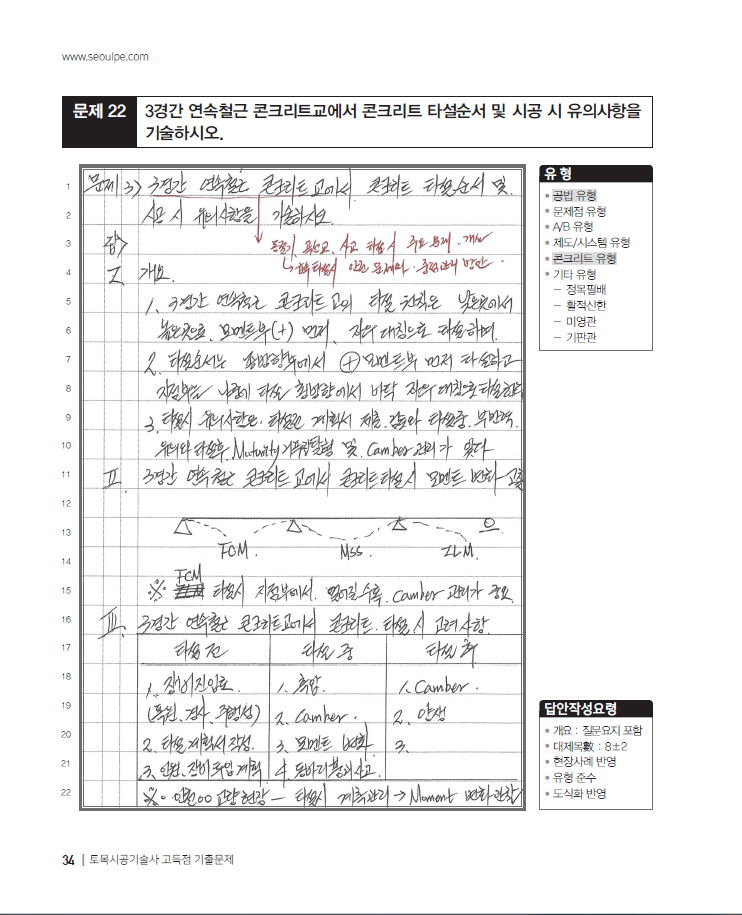 www.seoulpe.com
문제 22
3경간 연속철근 콘크리트교에서 콘크리트 타설순서 및 시공 시 유의사항을
기술하시오.
1 문제 3> 3경간 연속철근 콘크리트교에서 콘크리트 타설순서 및
2 시공 시 유의사항을 기술하시오.
3 답>
동바리, 곡선교, 사교 타설시 주요 문제, 개념
4 I. 개요
5 1. 3경간 연속철근 콘크리트교의 타설 원칙은 낮은곳에서
6 높은곳으로, 모멘트부(+) 먼저, 좌우 대칭으로 타설하며.
7 2. 타설순서는 종방향부에서 (+) 모멘트부 먼저 타설하고
8 지점부는 나중에 타설 횡방향에서 바탕 좌우대칭으로 타설한다
9 3. 타설시 유의사항은, 타설전 계획서 제출, 검토와 타설중, 부반력,
10 유의와 타설후, Maturity 거푸집탈형 및, Camber 관리가 있다
11 II. 3경간 연속철근 콘크리트교에서 콘크리트타설시 모멘트 변화
12
13
FCM. MSS. ILM.
14
15 ※ FCM 타설시 지점부에서. 멀어질수록, Camber 관리가 중요.
16 III. 3경간 연속철근 콘크리트교에서 콘크리트, 타설, 시 고려사항.
17 타설 전 타설 중 타설 후
18 1. 장비진입로 1. 측압. 1. Camber.
19 (폭원, 경사, 주행성) 2. Camber. 2. 양생
20 2. 타설계획서 작성. 3. 모멘트 변화 3.
21 3. 인원, 장비 투입계획 4. 동바리붕괴사고.
22 ※. 인천○○ 교량현장 - 타설시 계측관리 → Moment 변화관찰
유 형
• 공법 유형
• 문제점 유형
• A/B 유형
• 제도/시스템 유형
• 콘크리트 유형
• 기타 유형
– 정목필배
– 활적신한
– 미영관
– 기판관
답안작성요령
• 개요 : 질문요지 포함
• 대제목數 : 8±2
• 현장사례 반영
• 유형 준수
• 도식화 반영
34 | 토목시공기술사 고득점 기출문제